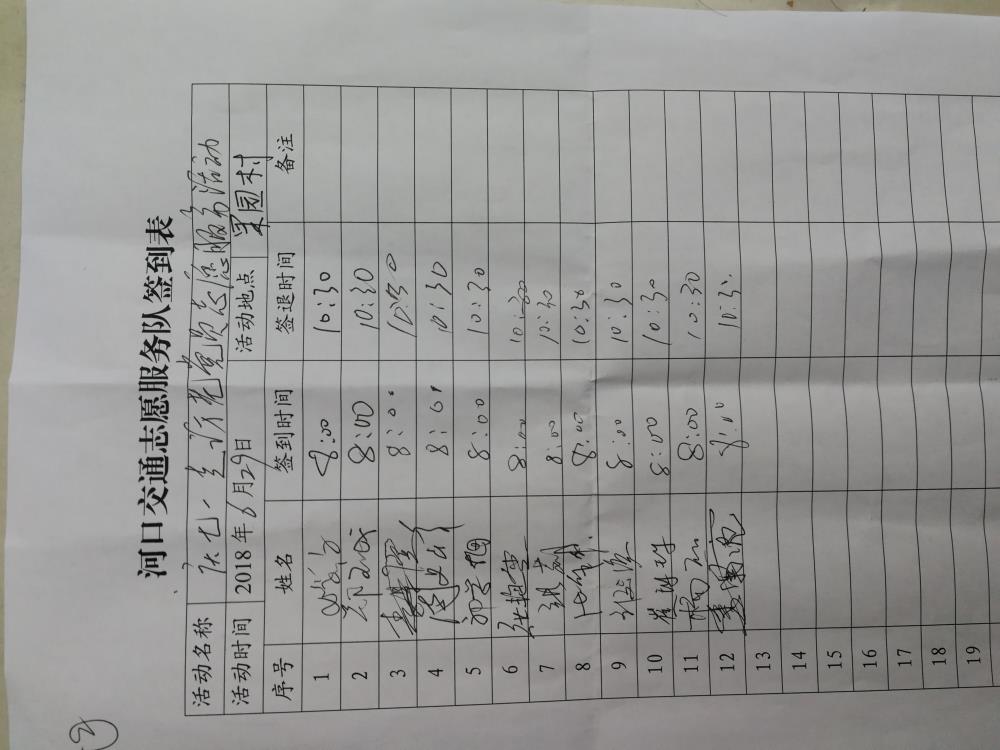 ②
河口交通志愿服务队签到表
活动名称 庆七一走访老党员志愿服务活动
活动时间 2018年6月29日 活动地点 果园村
序号 姓名 签到时间 签退时间 备注
1 8:00 10:30
2 8:00 10:30
3 8:00 10:30
4 8:00 10:30
5 8:00 10:30
6 8:00 10:30
7 8:00 10:30
8 8:00 10:30
9 8:00 10:30
10 8:00 10:30
11 8:00 10:30
12 8:00 10:30
13
14
15
16
17
18
19